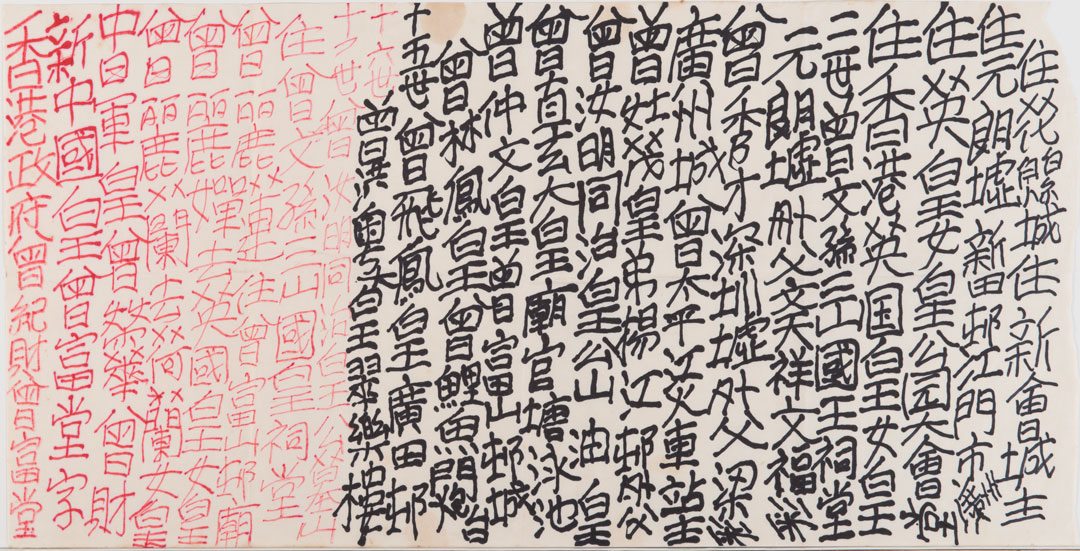 住花城住新會城主
住元朗墟新田邨江門市廣州
住英皇女皇公园大會堂
住香港英国皇王女皇
三世曾文孫三山國王祠堂
元朗墟外父文天祥文福彩
曾香才深圳墟外父梁彩
廣州城曾太平車站
曾灶發皇弟陽江邨外父
曾汝明同治皇公山油皇
曾大皇廟官塘泳池
曾仲文皇曾富山邨城
曾林鳳皇曾鯉魚門炮台
十五世曾飛鳳皇王廣田邨
曾洪粵秀皇翠樂樓
十六世
十七世曾汝明同治皇公墓山
住曾文孫三山國皇祠堂
曾麗嬋蓮住曾富山邨廟
曾麗嬋去英國皇女皇
曾麗蘭去何蘭女皇
中軍皇曾榮華曾財
新中國皇曾富堂字
香港政府曾紀財曾富堂